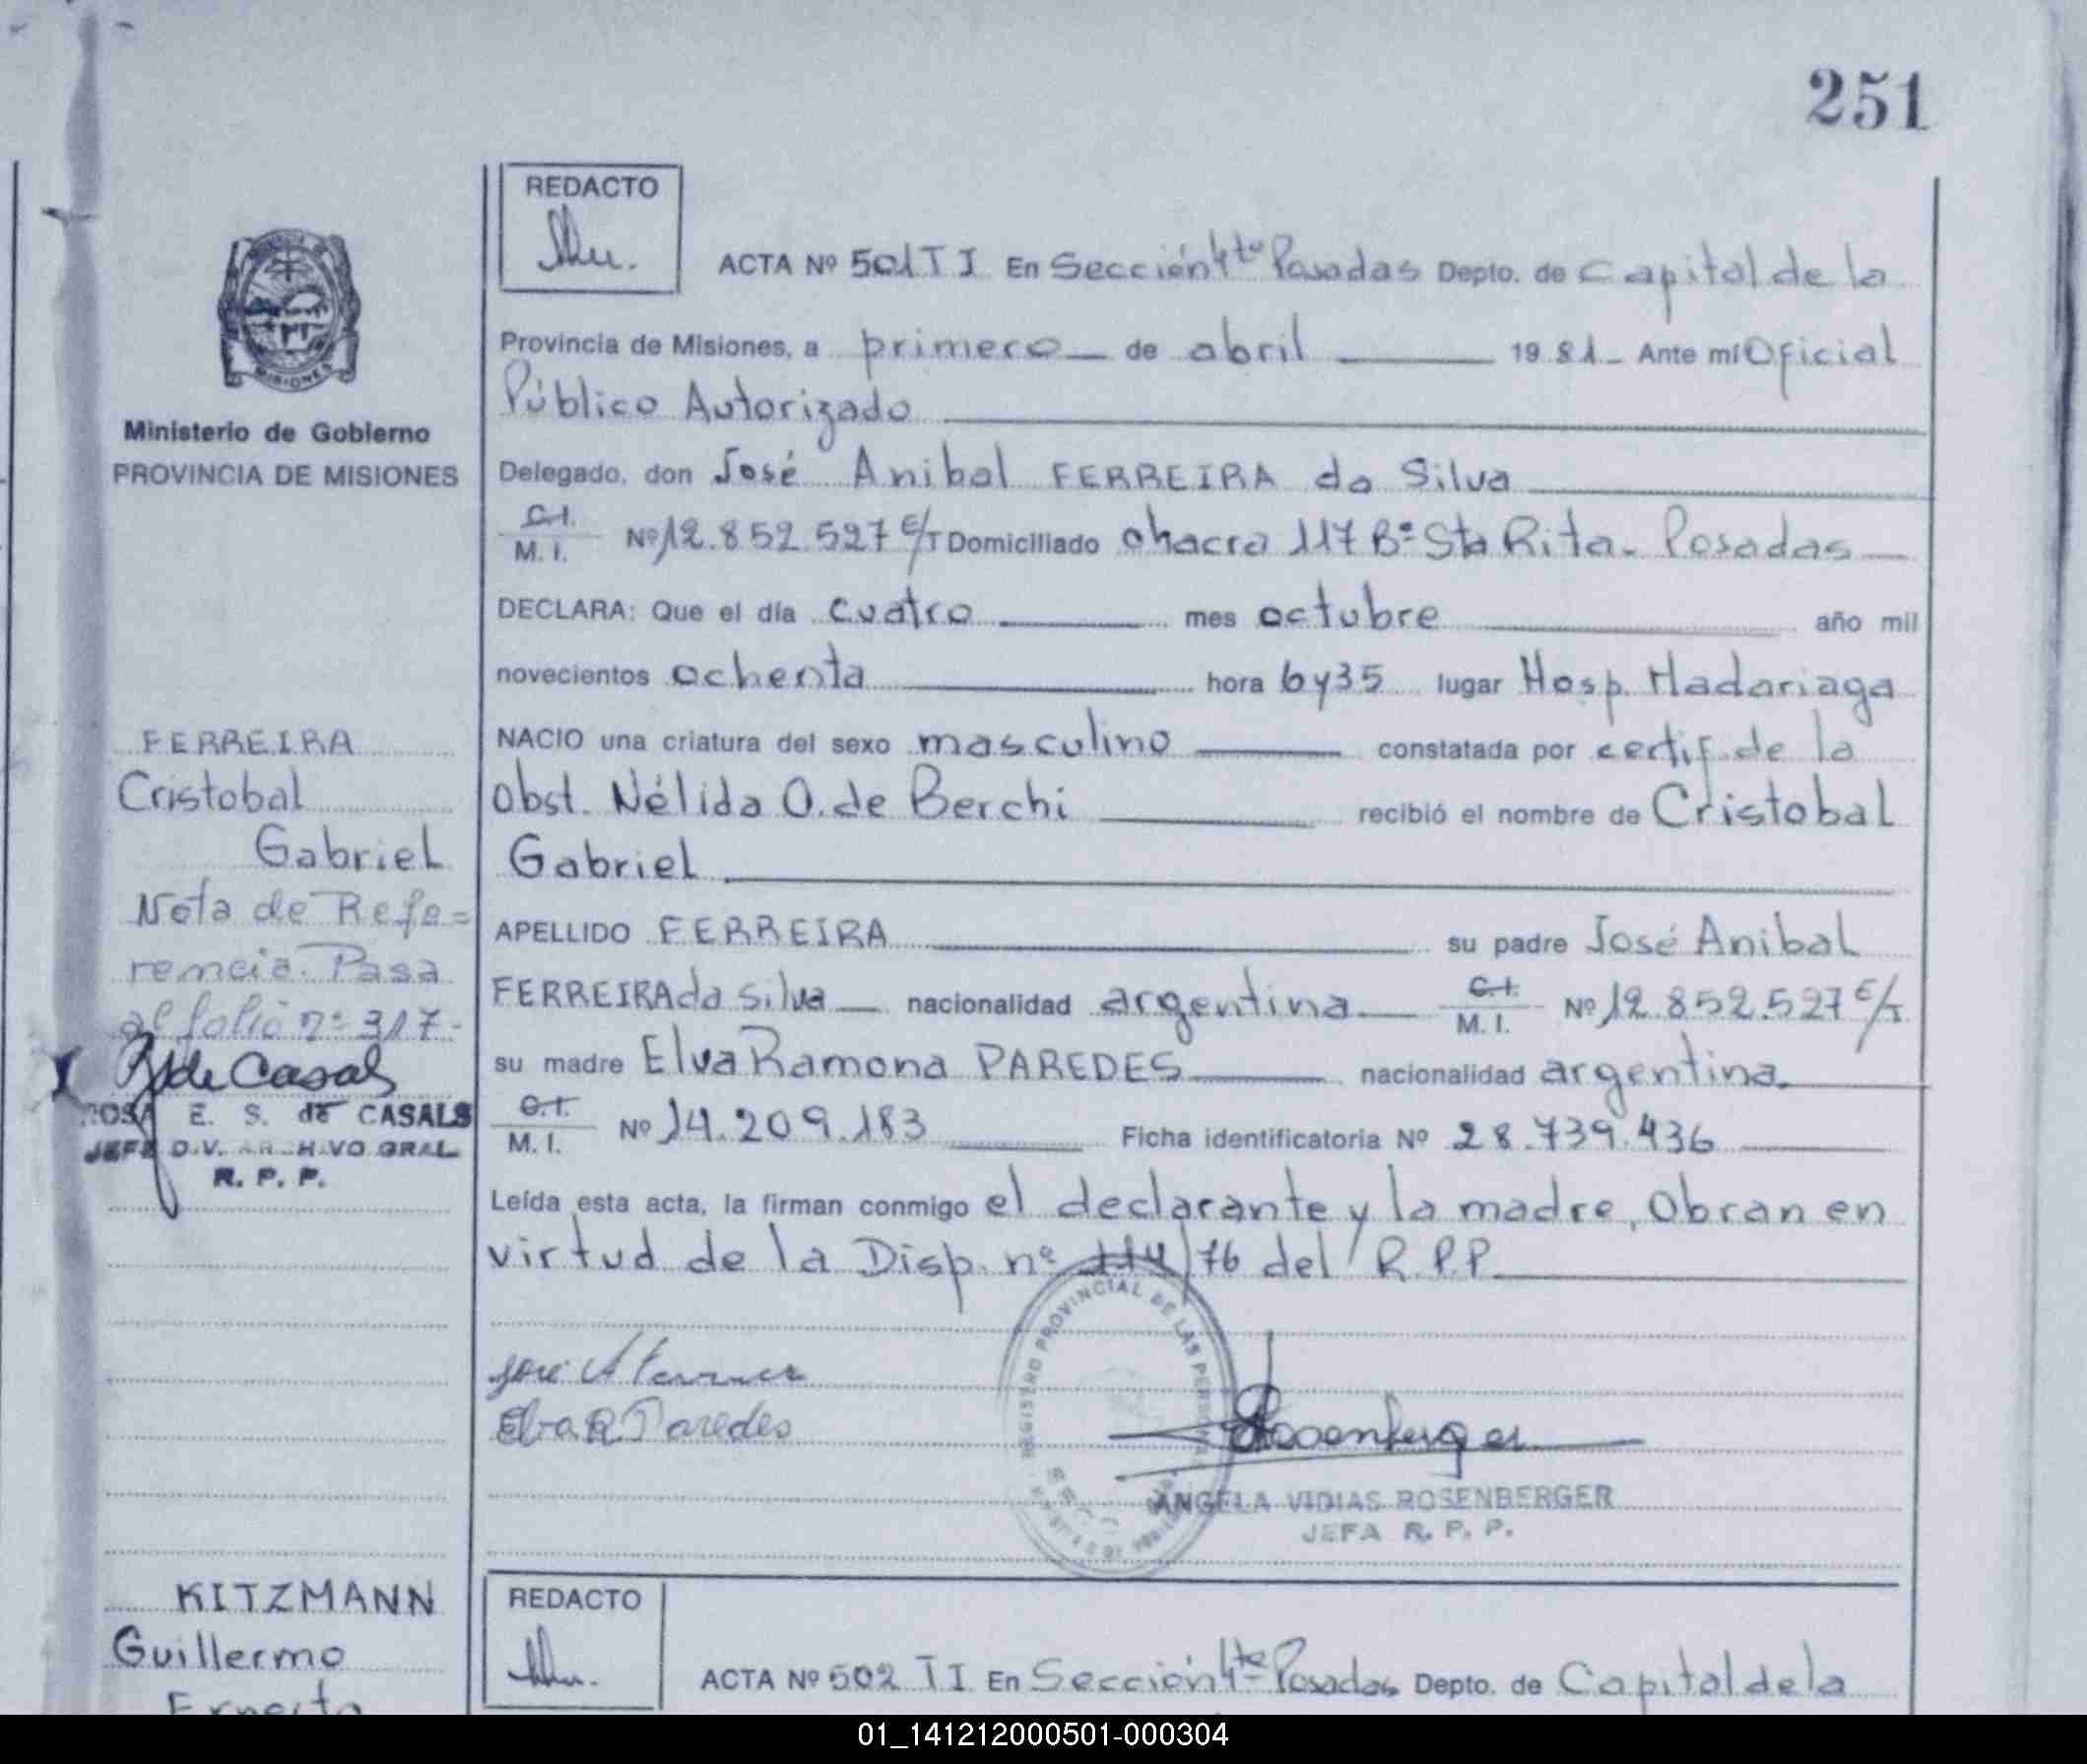 251
REDACTO
ACTA Nº 501 T I En Sección 4ta Posadas Depto. de Capital de la
Provincia de Misiones, a primero de abril 19 81 Ante mí Oficial
Público Autorizado
Delegado, don José Anibal FERREIRA da Silva
C.I.
M. I. Nº 12.852.527 E/T Domiciliado chacra 117 Bº Sta Rita - Posadas
DECLARA: Que el día cuatro mes octubre año mil
novecientos ochenta hora 6 y 35 lugar Hosp. Madariaga
NACIO una criatura del sexo masculino constatada por certif. de la
Obst. Nélida O. de Berchi recibió el nombre de Cristobal
Gabriel
APELLIDO FERREIRA su padre José Anibal
FERREIRA da Silva nacionalidad argentina C.I. M. I. Nº 12.852.527 E/T
su madre Elva Ramona PAREDES nacionalidad argentina
C.I.
M. I. Nº 14.209.183 Ficha identificatoria Nº 28.739.436
Leída esta acta, la firman conmigo el declarante y la madre, Obran en
virtud de la Disp. nº 114/76 del R.P.P.
José A Ferreira
Elva R Paredes
Rosenberger
REGISTRO PROVINCIAL DE LAS PERSONAS
ANGELA VIDIAS ROSENBERGER
JEFA R. P. P.
MISIONES
Ministerio de Gobierno
PROVINCIA DE MISIONES
FERREIRA
Cristobal
Gabriel
Nota de Refe=
rencia. Pasa
al folio nº 317.-
R de Casals
ROSA E. S. de CASALS
JEFE DIV. ARCHIVO GRAL
R. P. P.
KITZMANN
Guillermo
Ernesto
REDACTO
ACTA Nº 502 T I En Sección 4ta Posadas Depto. de Capital de la
01_141212000501-000304